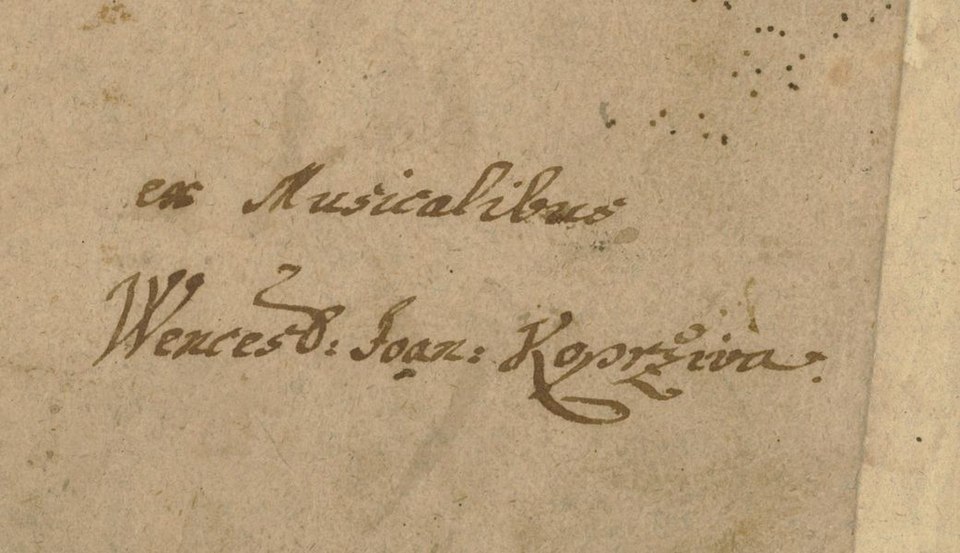 ex Musicalibus
Wencesl: Joan: Koprziva.